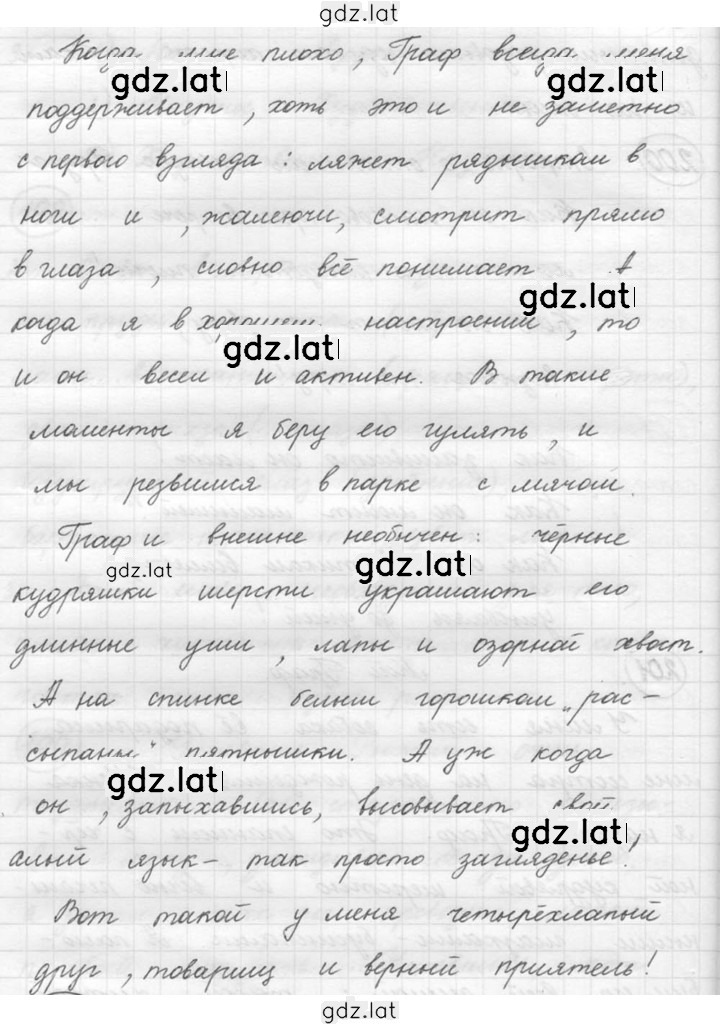 gdz.lat
Когда мне плохо, Граф всегда меня
gdz.lat gdz.lat
поддерживает, хоть это и не заметно
с первого взгляда: ляжет рядышком в
ноги и, жалеючи, смотрит прямо
в глаза, словно всё понимает А
gdz.lat
когда я в хорошем настроении, то
gdz.lat
и он весел и активен. В такие
моменты я беру его гулять, и
мы резвимся в парке с мячом.
Граф и внешне необычен: чёрные
gdz.lat gdz.lat
кудряшки шерсти украшают его
длинные уши, лапы и озорной хвост.
А на спинке белым горошком „рас-
сыпаны" пятнышки. А уж когда
gdz.lat
он, запыхавшись, высовывает свой
gdz.lat
алый язык – так просто загляденье!
Вот такой у меня четырёхлапый
друг, товарищ и верный приятель!
gdz.lat